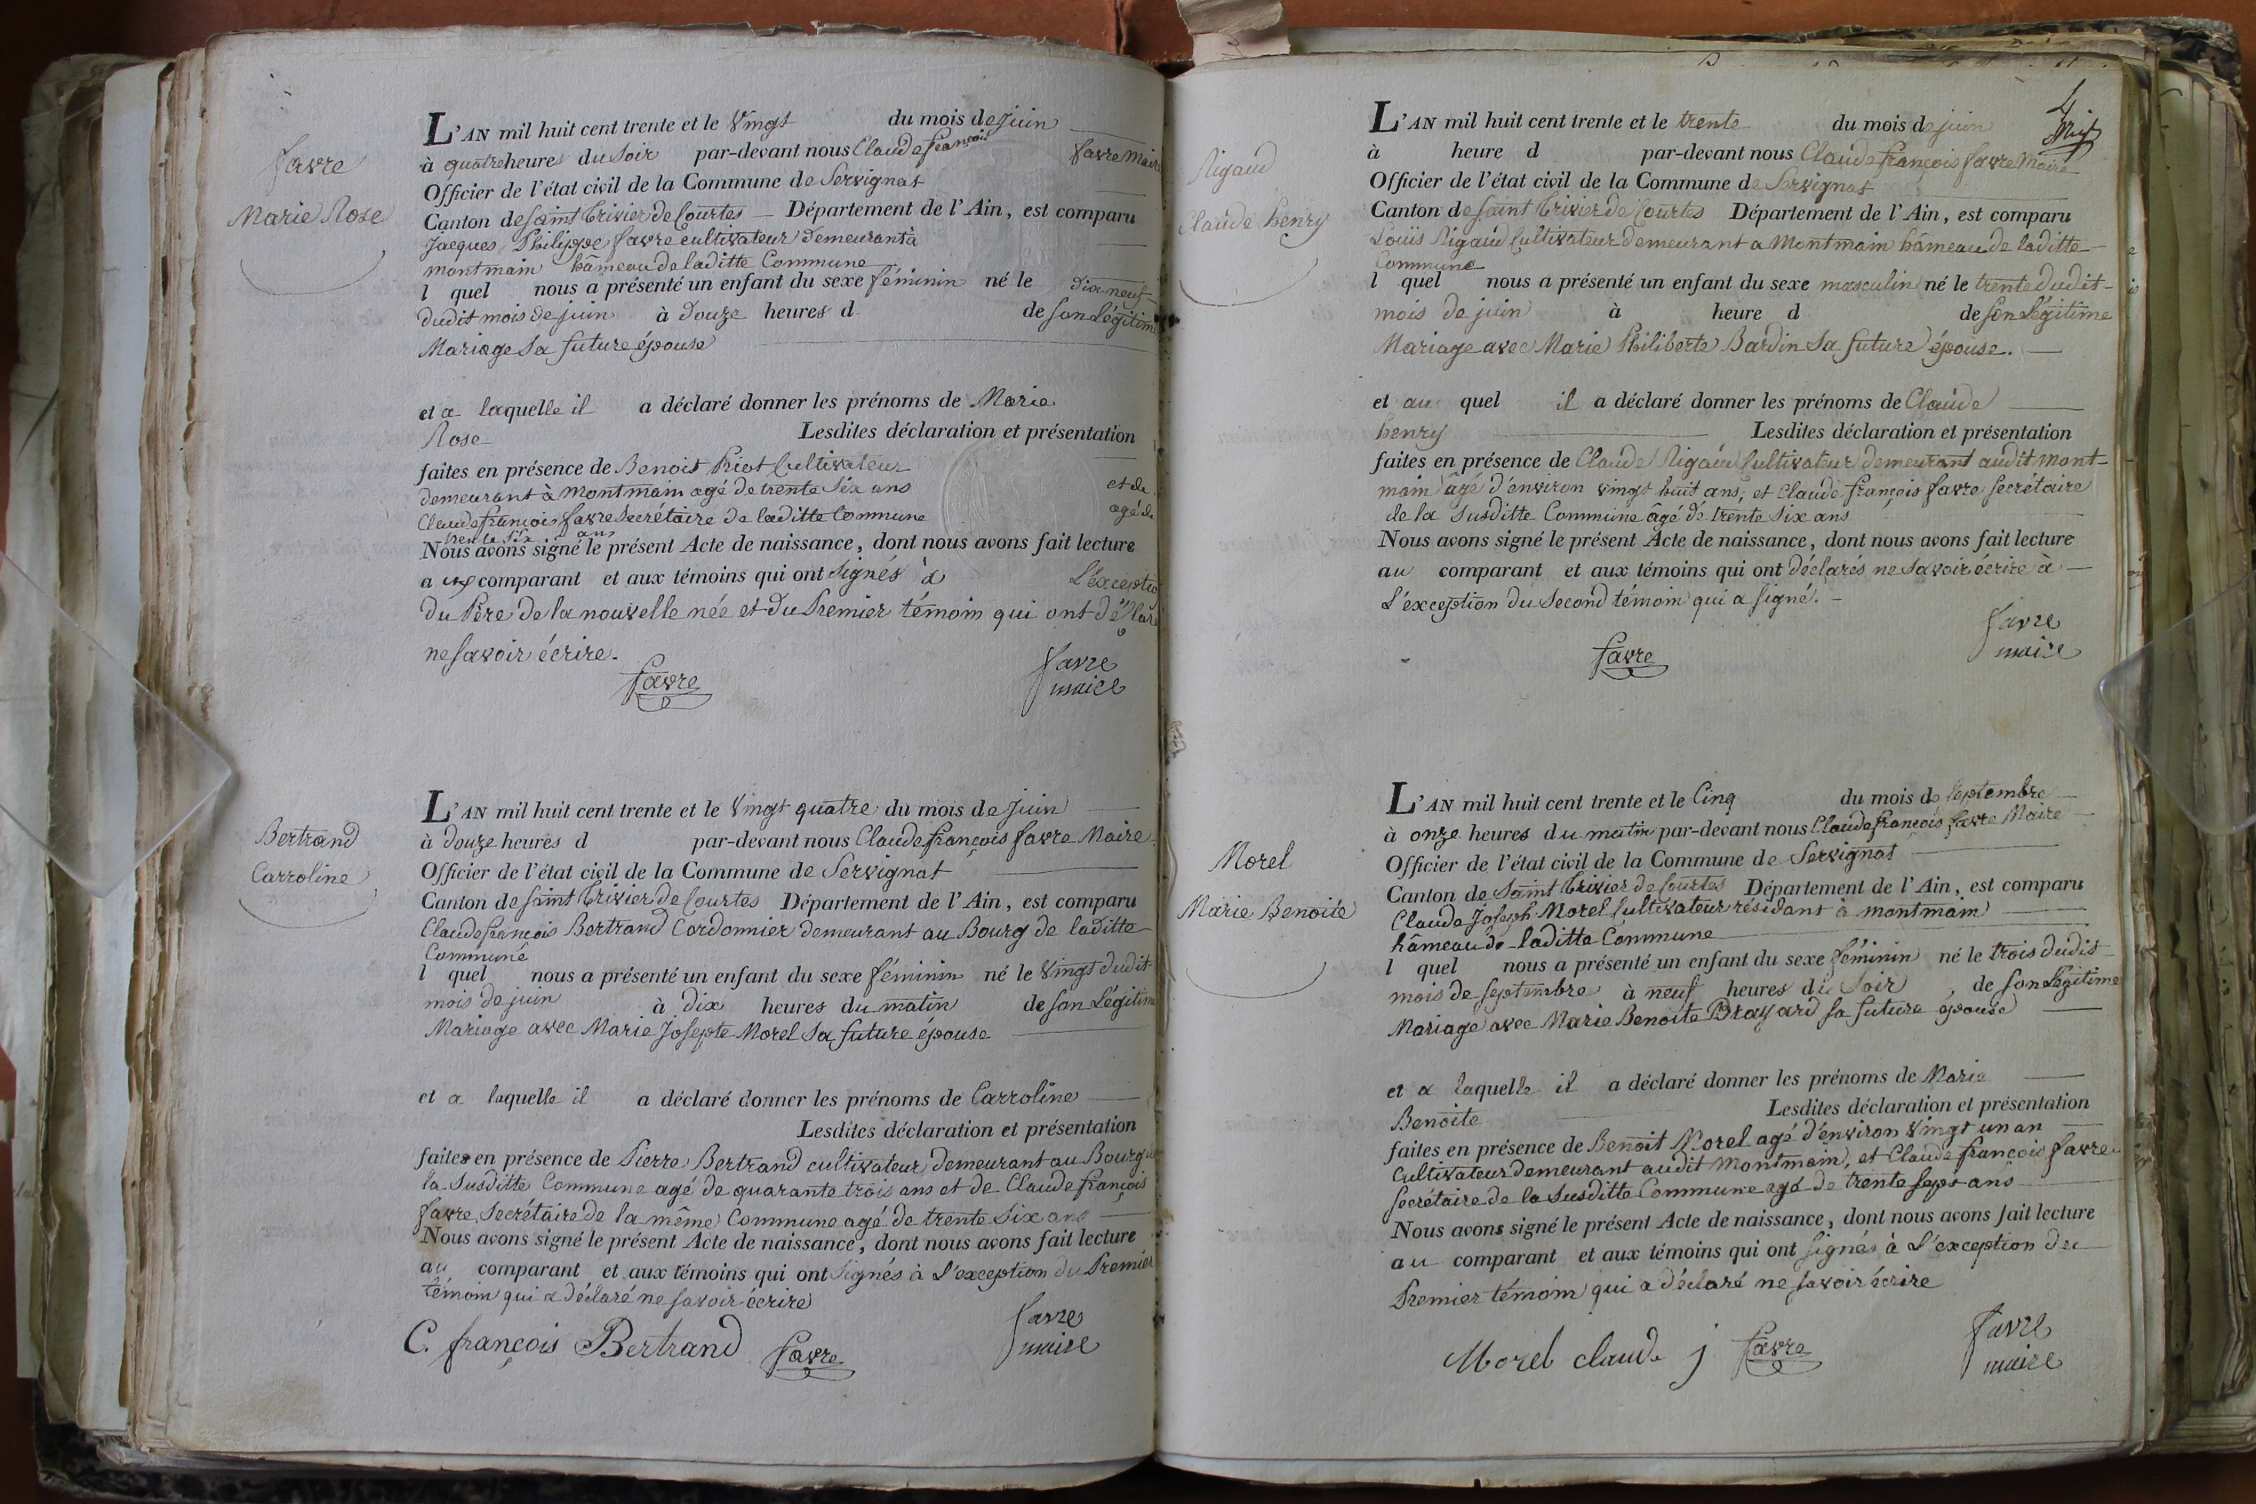 Favre
Marie Rose
L'AN mil huit cent trente et le Vingt du mois de juin
à quatre heures du Soir par-devant nous Claude françois favre Maire
Officier de l'état civil de la Commune de Servignat
Canton de Saint Trivier de Courtes Département de l'Ain, est comparu
Jacques Philippe favre cultivateur demeurant à
montmain hâmeau de laditte Commune
l quel nous a présenté un enfant du sexe féminin né le dix neuf
dudit mois de juin à douze heures d de son Légitime
Mariage Sa future épouse
et a laquelle il a déclaré donner les prénoms de Marie
Rose Lesdites déclaration et présentation
faites en présence de Benoit Riot Cultivateur
demeurant à Montmain agé de trente Six ans et de
Claude françois favre Secrétaire de laditte Commune agé de
trente six ans
Nous avons signé le présent Acte de naissance, dont nous avons fait lecture
a comparant et aux témoins qui ont Signés à L'exception
du Père de la nouvelle née et du Premier témoin qui ont déclaré
ne Savoir écrire.
favre
favre
maire
Bertrand
Carroline
L'AN mil huit cent trente et le Vingt quatre du mois de juin
à douze heures d par-devant nous Claude françois favre Maire
Officier de l'état civil de la Commune de Servignat
Canton de Saint Trivier de Courtes Département de l'Ain, est comparu
Claude françois Bertrand Cordonnier demeurant au Bourg de laditte
Commune
l quel nous a présenté un enfant du sexe féminin né le Vingt dudit
mois de juin à dix heures du matin de son Légitime
Mariage avec Marie Josepte Morel Sa future épouse
et a laquelle il a déclaré donner les prénoms de Carroline
Lesdites déclaration et présentation
faites en présence de Pierre Bertrand cultivateur demeurant au Bourg
la Susditte Commune agé de quarante trois ans et de Claude françois
favre Secrétaire de la même Commune agé de trente Six ans
Nous avons signé le présent Acte de naissance, dont nous avons fait lecture
au comparant et aux témoins qui ont Signés à L'exception du Premier
témoin qui a déclaré ne Savoir écrire
C. françois Bertrand favre
favre
maire
Rigaud
Claude henry
L'AN mil huit cent trente et le trente du mois de juin
à heure d par-devant nous Claude françois favre Maire
Officier de l'état civil de la Commune de Servignat
Canton de Saint Trivier de Courtes Département de l'Ain, est comparu
Louis Rigaud Cultivateur demeurant a Montmain hâmeau de laditte
Commune
l quel nous a présenté un enfant du sexe masculin né le trente dudit
mois de juin à heure d de son Légitime
Mariage avec Marie Philiberte Bardin Sa future épouse.
et au quel il a déclaré donner les prénoms de Claude
henry Lesdites déclaration et présentation
faites en présence de Claude Rigaud Cultivateur demeurant audit mont-
main agé d'environ vingt huit ans, et Claude françois favre Secrétaire
de la Susditte Commune âgé de trente Six ans
Nous avons signé le présent Acte de naissance, dont nous avons fait lecture
au comparant et aux témoins qui ont déclarés ne Savoir écrire à
L'exception du Second témoin qui a signé.
favre
favre
maire
Morel
Marie Benoite
L'AN mil huit cent trente et le Cinq du mois de Septembre
à onze heures du matin par-devant nous Claude françois favre Maire
Officier de l'état civil de la Commune de Servignat
Canton de Saint Trivier de Courtes Département de l'Ain, est comparu
Claude Joseph Morel Cultivateur résidant à montmain
hâmeau de laditte Commune
l quel nous a présenté un enfant du sexe féminin né le trois dudit
mois de septembre à neuf heures du Soir de son Légitime
Mariage avec Marie Benoite Brayard sa future épouse
et a laquelle il a déclaré donner les prénoms de Marie
Benoite Lesdites déclaration et présentation
faites en présence de Benoit Morel agé d'environ Vingt un an
Cultivateur demeurant audit Montmain, et Claude françois favre
Secrétaire de la Susditte Commune agé de trente Sept ans
Nous avons signé le présent Acte de naissance, dont nous avons fait lecture
au comparant et aux témoins qui ont Signés à L'exception du
Premier témoin qui a déclaré ne Savoir écrire
Morel claude j favre
favre
maire